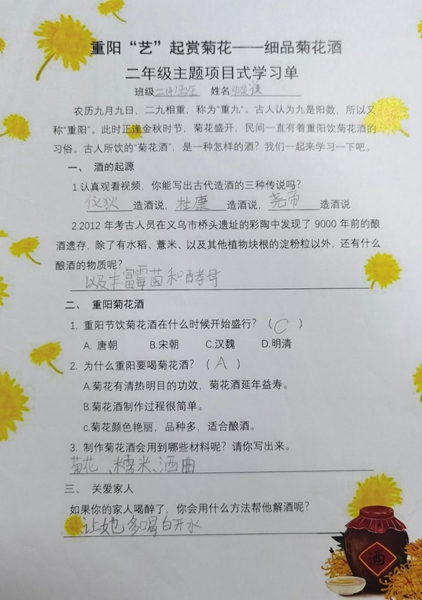 重阳“艺”起赏菊花——细品菊花酒
二年级主题项目式学习单
班级 姓名
农历九月九日，二九相重，称为“重九”。古人认为九是阳数，所以又
称“重阳”。此时正逢金秋时节，菊花盛开，民间一直有着重阳饮菊花酒的
习俗。古人所饮的“菊花酒”，是一种怎样的酒？我们一起来学习一下吧。
一、 酒的起源
1.认真观看视频，你能写出古代造酒的三种传说吗？
仪狄 造酒说， 杜康 造酒说， 尧帝 造酒说
2.2012 年考古人员在义乌市桥头遗址的彩陶中发现了 9000 年前的酿
酒遗存，除了有水稻、薏米、以及其他植物块根的淀粉粒以外，还有什么
酿酒的物质呢？
以及丰富霉菌和酵母
二、 重阳菊花酒
1. 重阳节饮菊花酒在什么时候开始盛行？（ C ）
A. 唐朝 B.宋朝 C.汉魏 D.明清
2. 为什么重阳要喝菊花酒？（ A ）
A.菊花有清热明目的功效，菊花酒延年益寿。
B.菊花酒制作过程很简单。
c.菊花颜色艳丽，品种多，适合酿酒。
3. 制作菊花酒会用到哪些材料呢？请你写出来。
菊花、糯米、酒曲
三、 关爱家人
如果你的家人喝醉了，你会用什么方法帮他解酒呢？
让她多喝白开水
酒